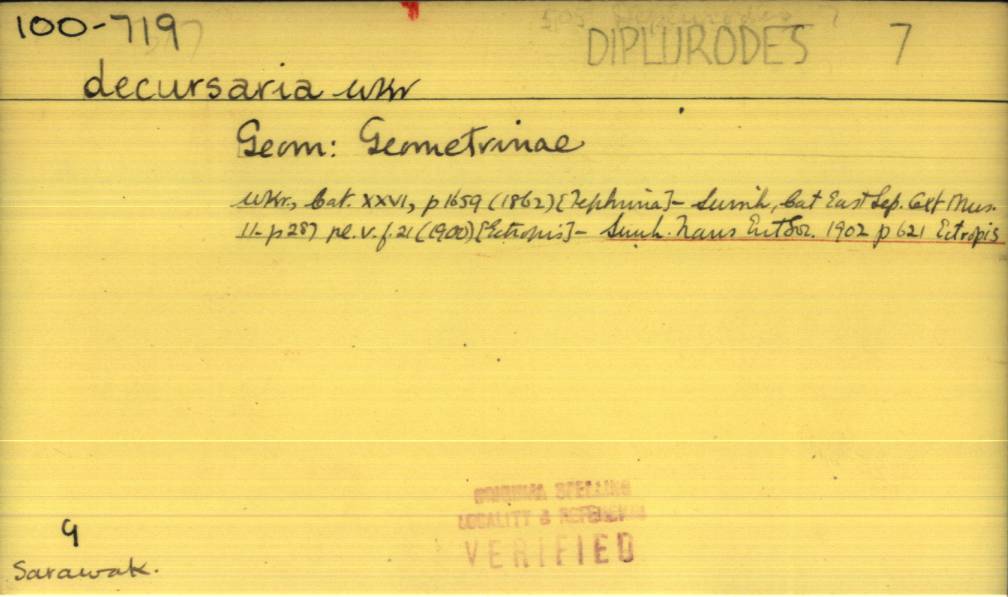 100-719
DIPLURODES 7
decursaria Wkr
Geom: Geometrinae
Wkr, Cat. XXVI, p 1659 (1862) [Tephrina] - Swinh, Cat East Lep. Oxf Mus.
II - p 287 pl. V. f. 21 (1900) [Ectropis] - Swinh. Trans Ent Soc. 1902 p 621 Ectropis
ORIGINAL SPELLING
LOCALITY & REFERENCE
VERIFIED
G
Sarawak.